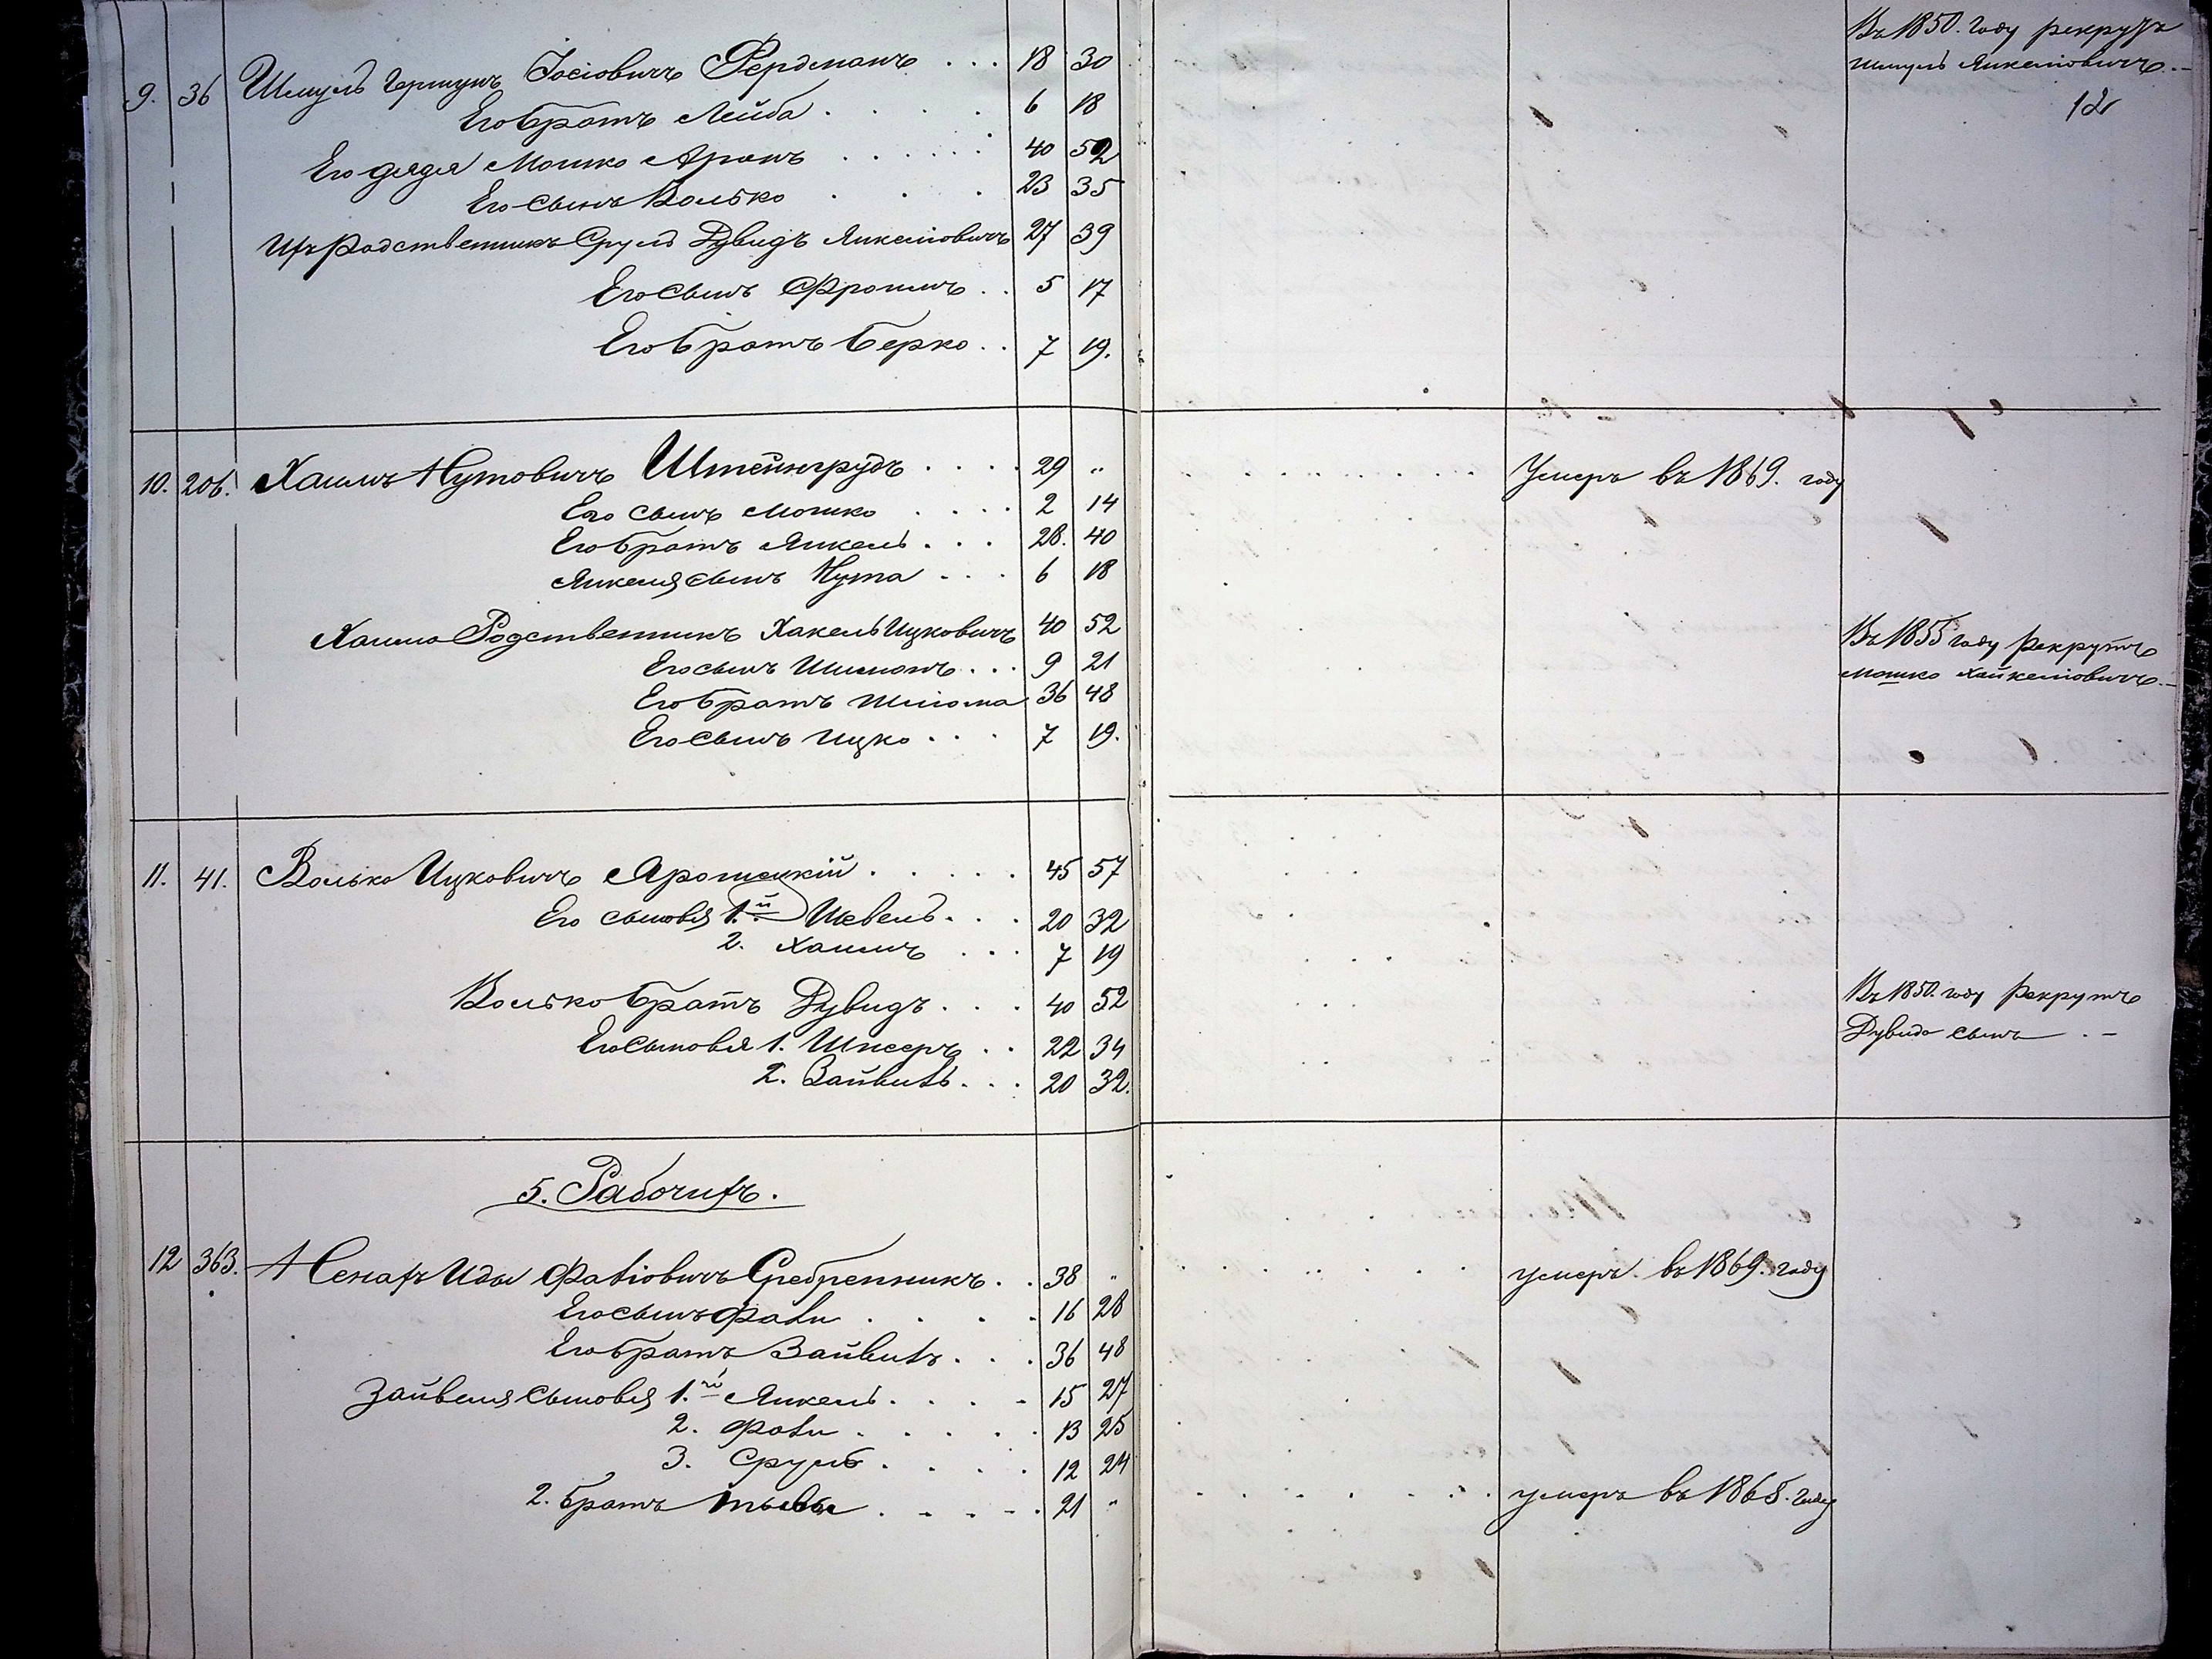 Въ 1850. году рекрутъ
Шмуль Янкеліовичъ. –
12
9. 36 Шмуль Гершунъ Іосіовичъ Фердманъ . . . 18 30
Его братъ Лейба . . . . 6 18
Его дядя Мошко Аронъ . . . . . . 40 52
Его сынъ Волько . . . 23 35
Ихъ Родственникъ Сруль Дувидъ Янкеліовичъ 27 39
Его сынъ Фроимъ . . 5 17
Его братъ Берко . . 7 19.
10. 206. Хаимъ Нутовичъ Штейнгрудъ . . . . 29 „ Умеръ въ 1869. году
Его сынъ Мошко . . . . 2 14
Его братъ Янкель . . . 28. 40
Янкеля сынъ Нута . . . 6 18
Хаима Родственникъ Хакель Ицковичъ 40 52 Въ 1855 году рекрутъ
Его сынъ Шимонъ . . . 9 21 Мошко Хайкеліовичъ. –
Его братъ Шліома 36 48
Его сынъ Ицко . . . 7 19.
11. 41. Волько Ицковичъ Ярошецкій . . . . . 45 57
Его сыновья 1.й Шевель . . . 20 32
2. Хаимъ . . . 7 19
Волько братъ Дувидъ . . . 40 52 Въ 1850. году рекрутъ
Его сыновья 1. . . 22 34 Дувида сынъ . –
2. Зайвель . . . 20 32.
5. Рабочихъ.
12 363. Идель Фавіовичъ Сребренникъ . . 38 „ умеръ въ 1869. году
Его сынъ . . . . 16 28
Его братъ Зайвель . . . 36 48
Зайвеля сыновья 1.й Янкель . . . . 15 27
2. . . . . . 13 25
3. Сруль . . . . 12 24
2. братъ . . . . . 21 „ умеръ въ 1868. году